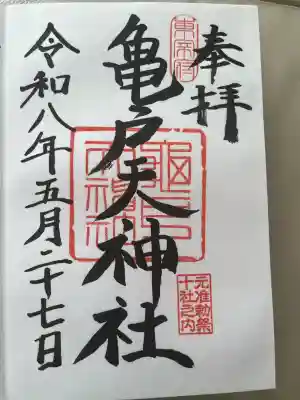 奉拝
東宰府
亀戸天神社
元准勅祭
十社之内
令和八年五月二十七日